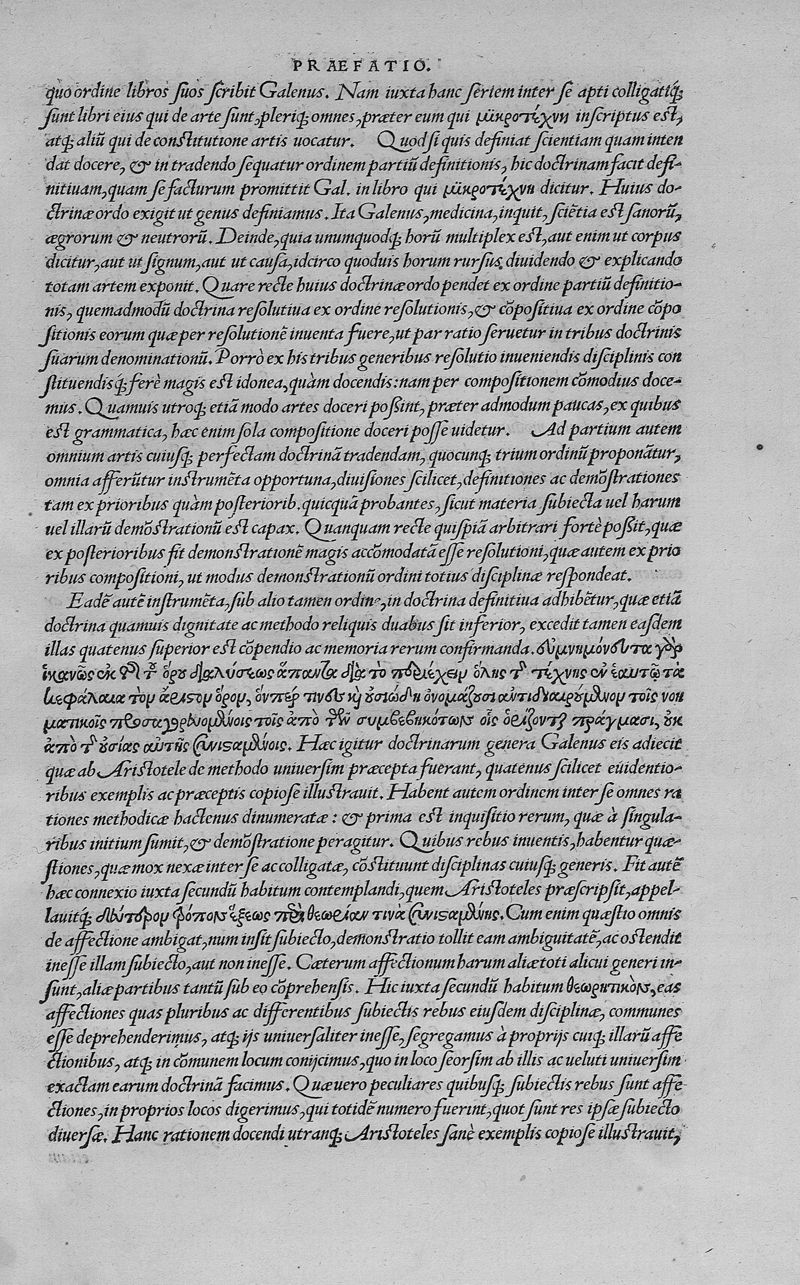 PRAEFATIO.
quo ordine libros suos scribit Galenus. Nam iuxta hanc seriem inter se apti colligatiq́;
sunt libri eius qui de arte sunt, pleriq; omnes, præter eum qui μικροτέχνη inscriptus est,
atq; aliũ qui de constitutione artis uocatur. Quod si quis definiat scientiam quam inten
dat docere, & in tradendo sequatur ordinem partiũ definitionis, hic doctrinam facit defi-
nitiuam, quam se facturum promittit Gal. in libro qui μικροτέχνη dicitur. Huius do-
ctrinæ ordo exigit ut genus definiamus. Ita Galenus, medicina, inquit, sciẽtia est sanorũ,
ægrorum & neutrorũ. Deinde, quia unumquodq; horũ multiplex est, aut enim ut corpus
dicitur, aut ut signum, aut ut causa, idcirco quoduis horum rursus diuidendo & explicando
totam artem exponit. Quare recte huius doctrinæ ordo pendet ex ordine partiũ definitio-
nis, quemadmodũ doctrina resolutiua ex ordine resolutionis, & cõpositiua ex ordine cõpo
sitionis eorum quæ per resolutionẽ inuenta fuere, ut par ratio seruetur in tribus doctrinis
suarum denominationũ. Porrò ex his tribus generibus resolutio inueniendis disciplinis con
stituendisq́; ferè magis est idonea, quàm docendis: nam per compositionem cõmodius doce-
mus. Quamuis utroq; etiã modo artes doceri possint, præter admodum paucas, ex quibus
est grammatica, hæc enim sola compositione doceri posse uidetur. Ad partium autem
omnium artis cuiusq; perfectam doctrinã tradendam, quocunq; trium ordinũ proponãtur,
omnia afferũtur instrumẽta opportuna, diuisiones scilicet, definitiones ac demõstrationes
tam ex prioribus quàm posteriorib. quicquã probantes, sicut materia subiecta uel harum
uel illarũ demõstrationũ est capax. Quanquam recte quispiã arbitrari fortè possit, quæ
ex posterioribus fit demonstrationẽ magis accõmodatã esse resolutioni, quæ autem ex prio
ribus compositioni, ut modus demonstrationũ ordini totius disciplinæ respondeat.
Eadẽ autẽ instrumẽta, sub alio tamen ordine, in doctrina definitiua adhibẽtur, quæ etiã
doctrina quamuis dignitate ac methodo reliquis duabus sit inferior, excedit tamen easdem
illas quatenus superior est cõpendio ac memoria rerum confirmanda. εὐμνημόνευτα γὰρ
ἱκανῶς ἐκ τῆς τοῦ ὅρου διαλύσεως ἅπαντα διὰ τὸ περιέχειν ὅλης τῆς τέχνης ἐν ἑαυτῷ τὰ
κεφάλαια τὸν ἄριστον ὅρον, ὅνπερ τινὲς καὶ οὐσιώδη ὀνομάζουσι ἀντιδιαιρούμενοι τοῖς νοη
ματικοῖς προσαγορευομένοις τοῖς ἀπὸ τῶν συμβεβηκότων οἷς ὁρίζονται πράγμασι, οὐκ
ἀπὸ τῆς οὐσίας αὐτῆς συνισταμένοις. Hæc igitur doctrinarum genera Galenus eis adiecit
quæ ab Aristotele de methodo uniuersim præcepta fuerant, quatenus scilicet euidentio-
ribus exemplis ac præceptis copiose illustrauit. Habent autem ordinem inter se omnes ra
tiones methodicæ hactenus dinumeratæ: & prima est inquisitio rerum, quæ à singula-
ribus initium sumit, & demõstratione peragitur. Quibus rebus inuentis, habentur quæ-
stiones, quæ mox nexæ inter se ac colligatæ, cõstituunt disciplinas cuiusq; generis. Fit autẽ
hæc connexio iuxta secundũ habitum contemplandi, quem Aristoteles præscripsit, appel-
lauitq; δεύτερον τρόπον ἕξεως περὶ θεωρίαν τινὰ συνισταμένης. Cum enim quæstio omnis
de affectione ambigat, num insit subiecto, demonstratio tollit eam ambiguitatẽ, ac ostendit
inesse illam subiecto, aut non inesse. Cæterum affectionum harum aliæ toti alicui generi in-
sunt, aliæ partibus tantũ sub eo cõprehensis. Hic iuxta secundũ habitum θεωρητικὸν, eas
affectiones quas pluribus ac differentibus subiectis rebus eiusdem disciplinæ, communes
esse deprehenderimus, atq; ijs uniuersaliter inesse, segregamus à proprijs cuiq; illarũ affe
ctionibus, atq; in cõmunem locum conijcimus, quo in loco seorsim ab illis ac ueluti uniuersim
exactam earum doctrinã facimus. Quæ uero peculiares quibusq; subiectis rebus sunt affe-
ctiones, in proprios locos digerimus, qui totidẽ numero fuerint, quot sunt res ipsæ subiecto
diuersæ. Hanc rationem docendi utranq; Aristoteles sanè exemplis copiose illustrauit,